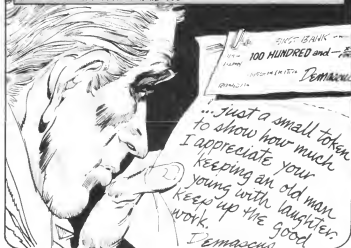 FIRST BANK
100 HUNDRED and —
Demascus
...just a small token
to show how much
I appreciate your
keeping an old man
young with laughter.
Keep up the good
work.
Demascus